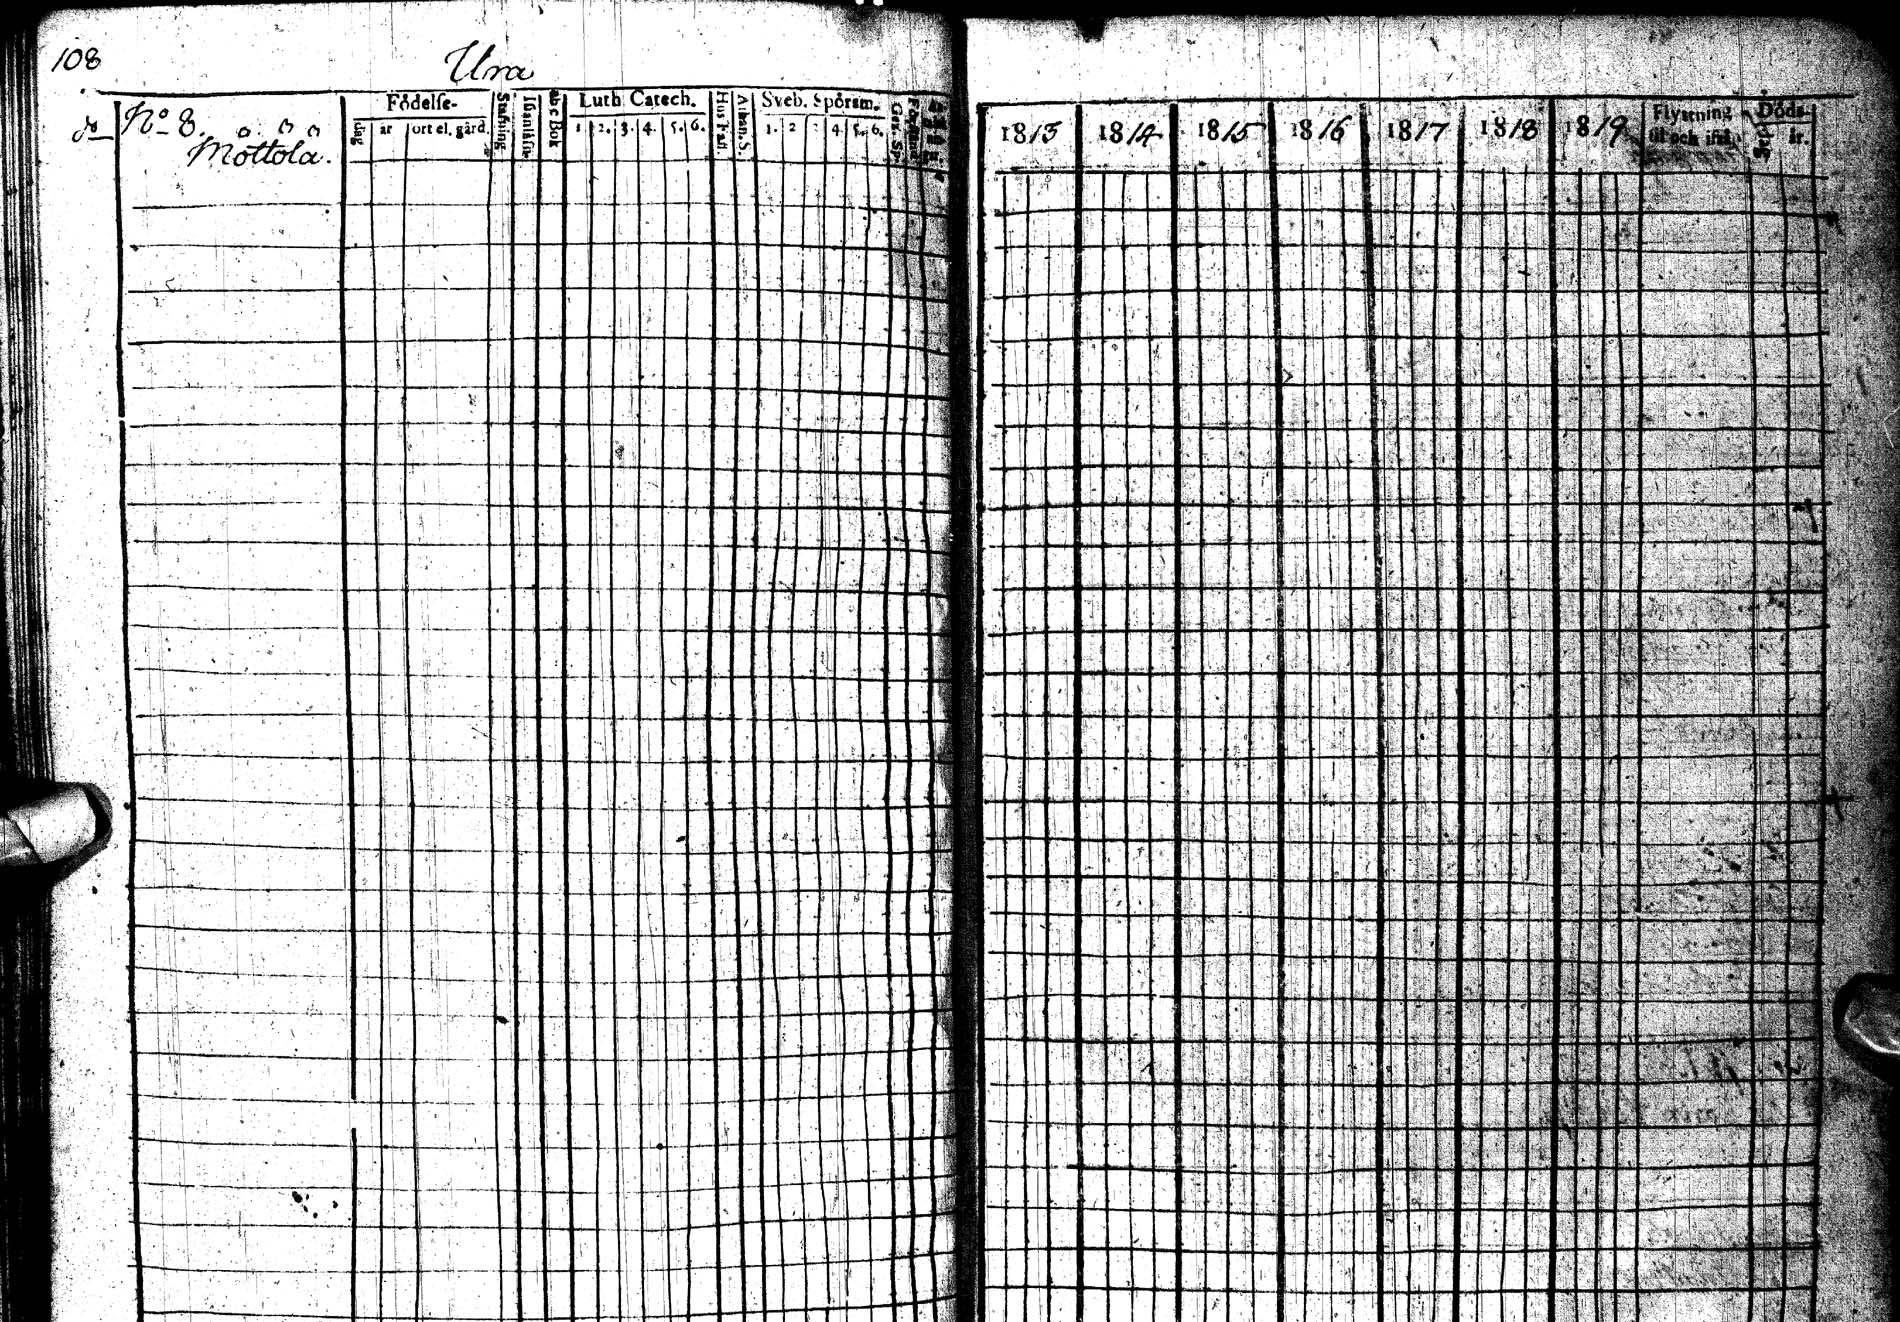 108
Ura
No 8.
Möttölä.
Födelse-
dag år ort el. gård.
Stafning
Abc Bok
Luth. Catech.
1 2. 3. 4. 5. 6.
Hus Tafl.
Athan. S.
Sveb. Spörsm.
1. 2 3 4. 5. 6.
1813 1814 1815 1816 1817 1818 1819
Flyttning
til och ifrå
Döds-
dag år.